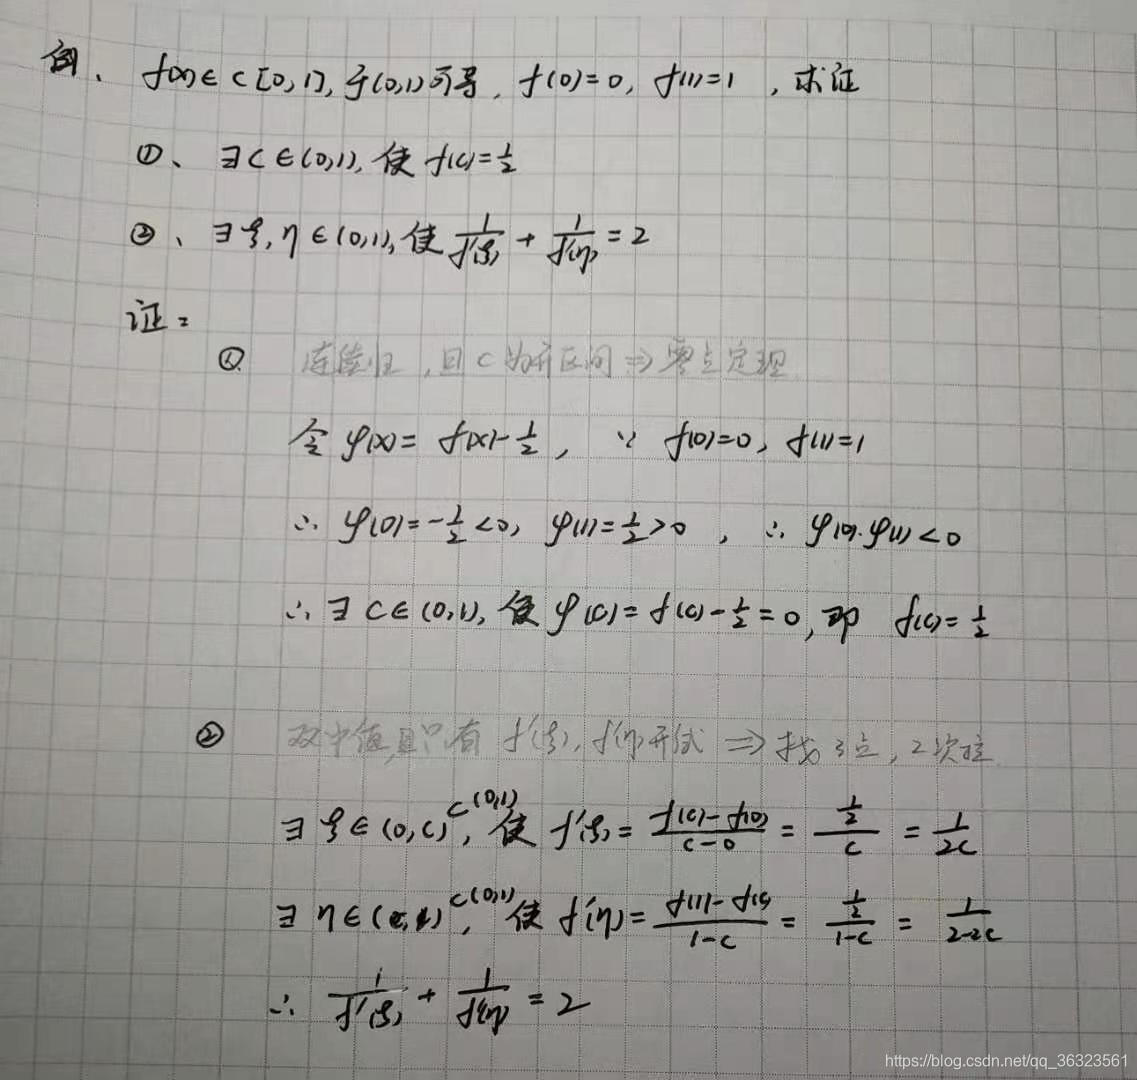 例、 f(x)∈C[0,1], 于(0,1)可导, f(0)=0, f(1)=1 , 求证
①、 ∃c∈(0,1), 使 f(c)=1/2
②、 ∃ξ,η∈(0,1), 使 1/f'(ξ) + 1/f'(η) = 2
证:
① 连续性, 且c为开区间⇒零点定理
令 φ(x)= f(x)-1/2, ∵ f(0)=0, f(1)=1
∴ φ(0)=-1/2<0, φ(1)=1/2>0 , ∴ φ(0)·φ(1)<0
∴ ∃ c∈(0,1), 使 φ(c)= f(c)-1/2=0, 即 f(c)=1/2
② 双中值,且只有 f'(ξ), f'(η)形式 ⇒ 找3点, 2次拉
∃ ξ∈(0,c)⊂(0,1), 使 f'(ξ)= (f(c)-f(0))/(c-0) = (1/2)/c = 1/2c
∃ η∈(c,1)⊂(0,1), 使 f'(η)= (f(1)-f(c))/(1-c) = (1/2)/(1-c) = 1/(2-2c)
∴ 1/f'(ξ) + 1/f'(η) = 2
https://blog.csdn.net/qq_36323561